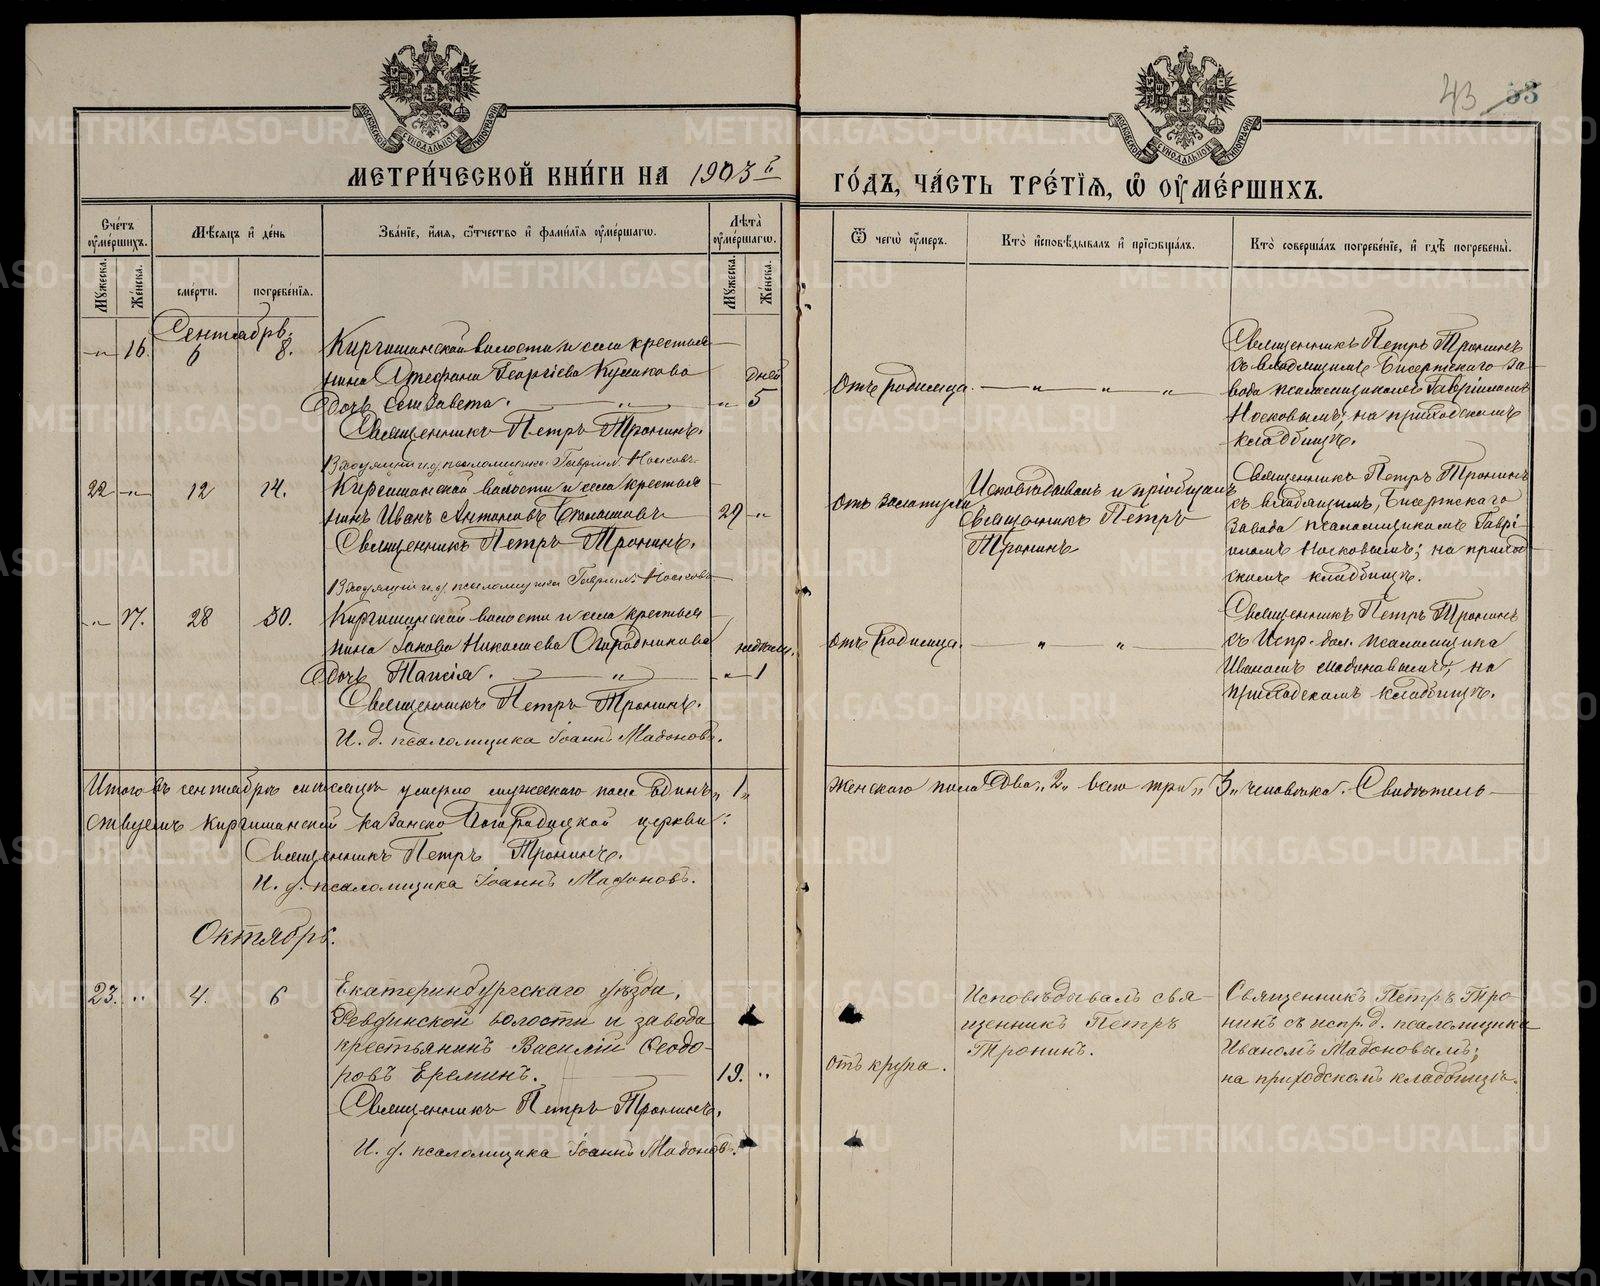 43 53
МЕТРИ́ЧЕСКОЙ КНИ́ГИ НА 1903 г.
ГО́ДЪ, ЧА́СТЬ ТРЕ́ТІѦ, Ѡ ОУМЕ́РШИХЪ.
Счетъ оумершихъ.
Мѣсяцъ и день
Званіе, имя, отчество и фамилія оумершагѡ.
Лѣта оумершагѡ.
Ѿ чегѡ оумеръ.
Кто исповѣдывалъ и пріѡбщалъ.
Кто совершалъ погребеніе, и гдѣ погребены.
Мужеска.
Женска.
смерти.
погребенія.
Мужеска.
Женска.
Сентябрь.
-"- 16. 6 8.
Киргишанской волости и села крестья-
нина Георгіева Куликова
дочь Елизавета. "
Священникъ Петръ Тронинъ.
дней
-"- 5
Отъ родимца. " " "
Священникъ Петръ Тронинъ
съ Бисертскаго за-
вода псаломщикомъ Гавріиломъ
Носковымъ; на приходскомъ
кладбищѣ.
псаломщика Гавріилъ Носковъ
22 -"- 12 14.
Киргишанской волости и села крестья-
нинъ Иванъ Антоновъ
Священникъ Петръ Тронинъ.
29 -"-
Исповѣдывалъ и пріобщалъ
Священникъ Петръ
Тронинъ
Священникъ Петръ Тронинъ
съ Бисертскаго
завода псаломщикомъ Гаврі-
иломъ Носковымъ; на приход-
скомъ кладбищѣ.
псаломщика Гавріилъ Носковъ
-"- 17. 28 30.
Киргишанской волости и села крестья-
нина Іакова Николаева Огородникова
дочь Таисія. "
Священникъ Петръ Тронинъ.
И. д. псаломщика Іоаннъ Мадоновъ.
-"- 1
отъ родимца. " "
Священникъ Петръ Тронинъ
съ испр. дол. псаломщика
Иваномъ Мадоновымъ; на
приходскомъ кладбищѣ.
Итого въ сентябрѣ мѣсяцѣ умерло мужескаго пола одинъ „1„ женскаго пола два „2„ всего три „3„ человѣка. Свидѣтель-
ствуемъ Киргишанской Казанско Богородицкой церкви:
Священникъ Петръ Тронинъ.
И. д. псаломщика Іоаннъ Мадоновъ.
Октябрь.
23. " 4. 6
Екатеринбургскаго уѣзда,
Ревдинской волости и завода
крестьянинъ Василій Ѳеодо-
ровъ Ереминъ.
Священникъ Петръ Тронинъ.
И. д. псаломщика Іоаннъ Мадоновъ.
19. "
отъ крупа.
Исповѣдывалъ свя-
щенникъ Петръ
Тронинъ.
Священникъ Петръ Тро-
нинъ съ испр. д. псаломщика
Иваномъ Мадоновымъ;
на приходскомъ кладбищѣ.
METRIKI.GASO-URAL.RU